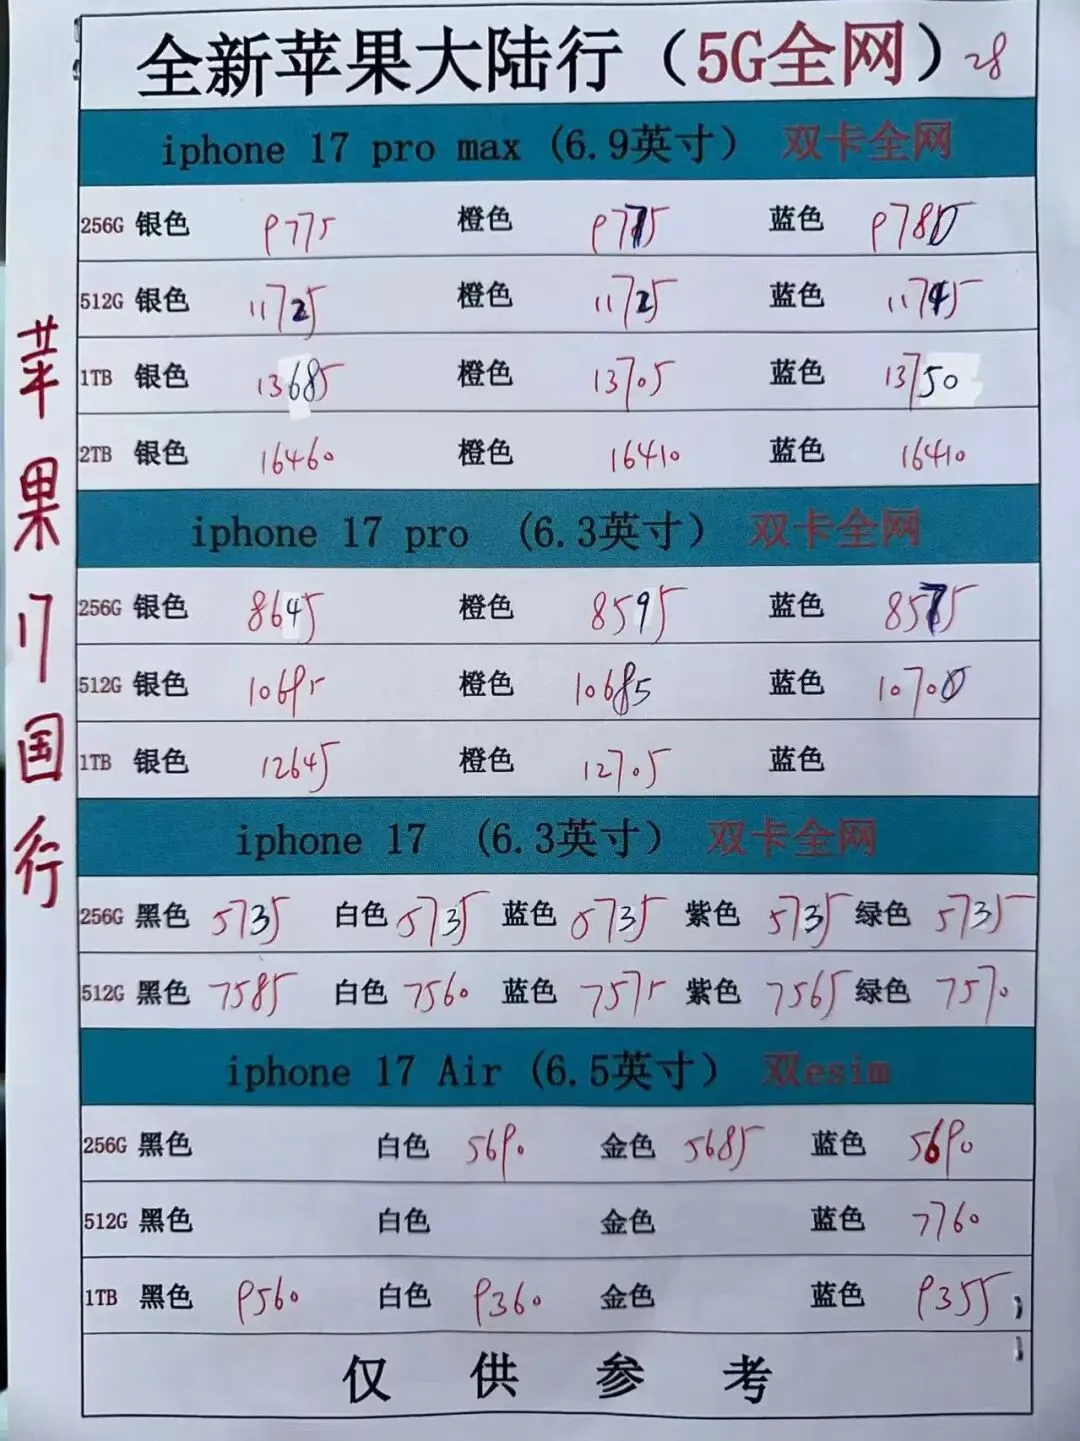 全新苹果大陆行（5G全网）28
iphone 17 pro max (6.9英寸） 双卡全网
256G 银色 9775 橙色 9775 蓝色 9780
512G 银色 11725 橙色 11725 蓝色 11745
1TB 银色 13685 橙色 13705 蓝色 13750
2TB 银色 16460 橙色 16410 蓝色 16410
iphone 17 pro （6.3英寸） 双卡全网
256G 银色 8645 橙色 8595 蓝色 8575
512G 银色 10695 橙色 10685 蓝色 10700
1TB 银色 12645 橙色 12705 蓝色
iphone 17 （6.3英寸） 双卡全网
256G 黑色 5735 白色 5735 蓝色 5735 紫色 5735 绿色 5735
512G 黑色 7585 白色 7560 蓝色 7575 紫色 7565 绿色 7570
iphone 17 Air (6.5英寸） 双esim
256G 黑色 白色 5690 金色 5685 蓝色 5690
512G 黑色 白色 金色 蓝色 7760
1TB 黑色 9560 白色 9360 金色 蓝色 9355
仅供参考
苹果17国行